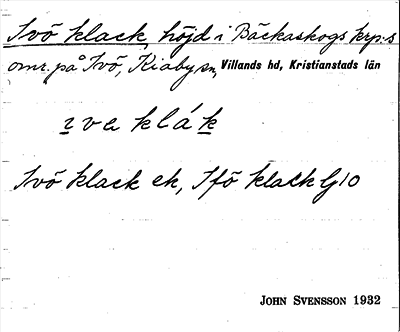 Ivö klack, höjd i Bäckaskogs krp:s
omr. på Ivö, Kiaby sn, Villands hd, Kristianstads län
ɪvə klák
Ivö klack ek, Ifö klack Gl0
JOHN SVENSSON 1932